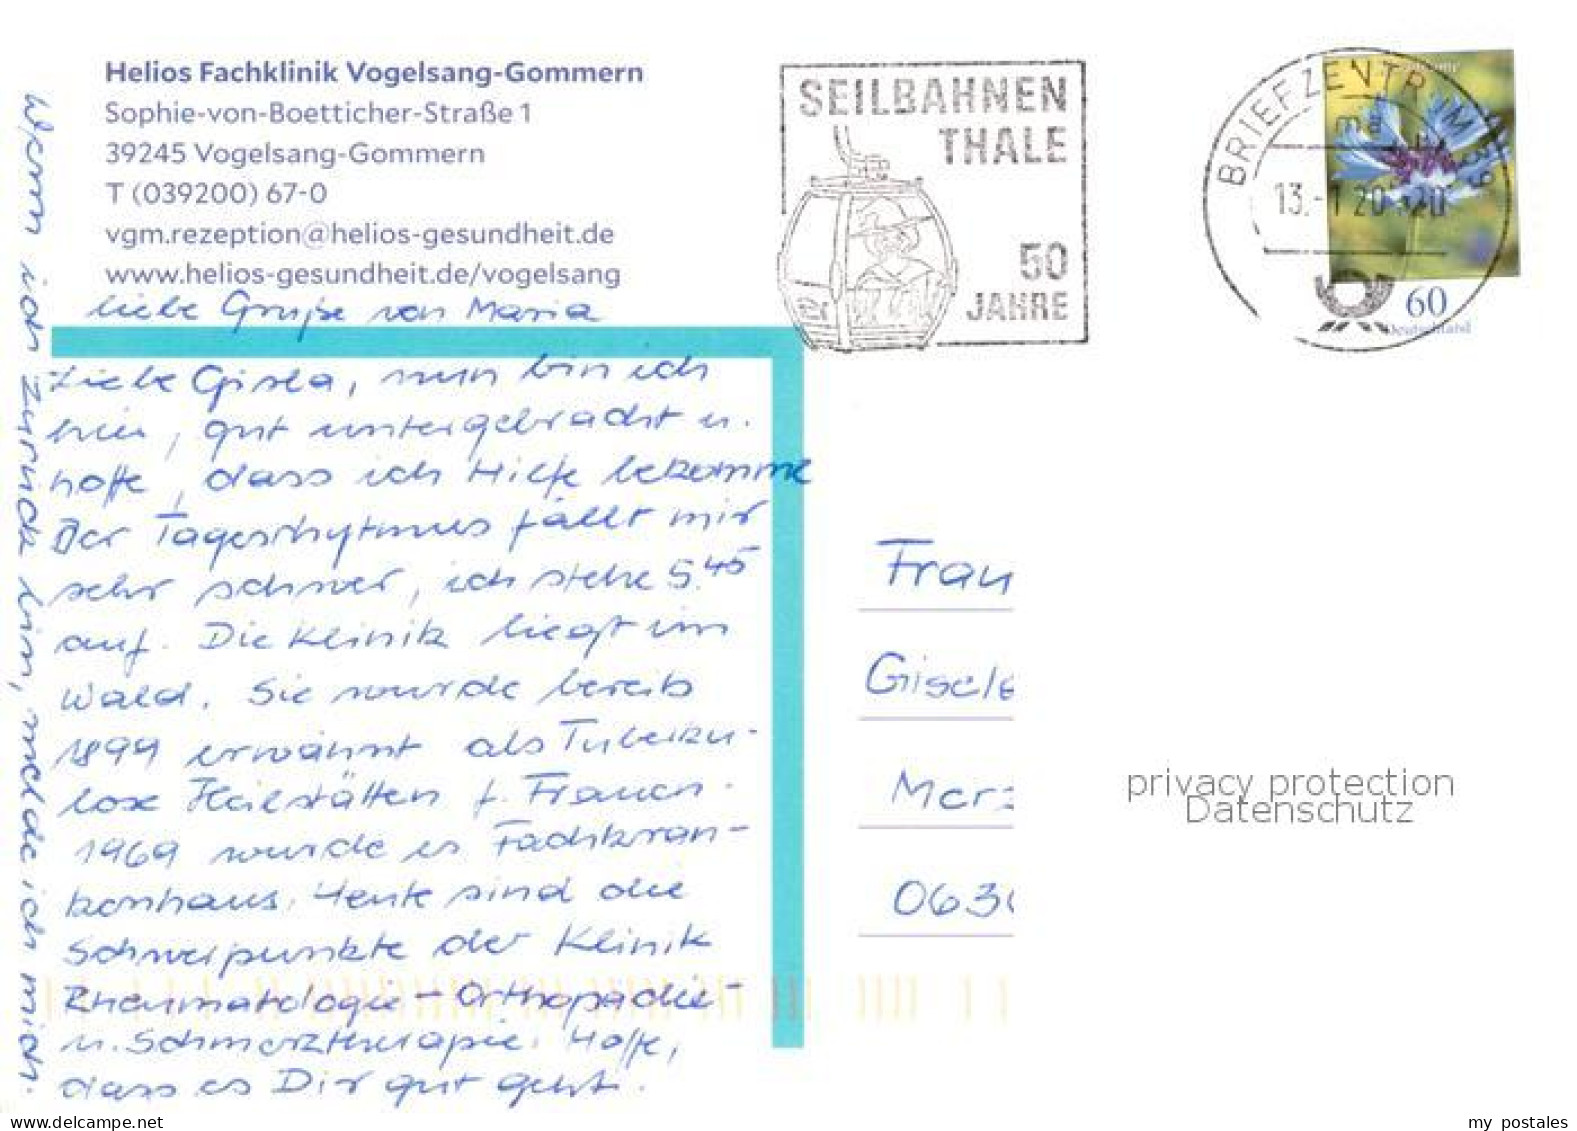 Helios Fachklinik Vogelsang-Gommern
Sophie-von-Boetticher-Straße 1
39245 Vogelsang-Gommern
T (039200) 67-0
vgm.rezeption@helios-gesundheit.de
www.helios-gesundheit.de/vogelsang
liebe Grüße von Maria
Liebe Gisela, nun bin ich
hier, gut untergebracht u.
hoffe, dass ich Hilfe bekomme
Der Tagesrhytmus fällt mir
sehr schwer, ich stehe 5.45
auf. Die Klinik liegt im
Wald. Sie wurde bereits
1899 erwähnt als Tuberku-
lose Heilstätten f. Frauen.
1969 wurde es Fachkran-
kenhaus. Heute sind die
Schwerpunkte der Klinik
Rheumatologie - Orthopädie -
u. Schmerztherapie. Hoffe,
dass es Dir gut geht.
Wenn ich zurück bin, melde ich mich.
SEILBAHNEN
THALE
50
JAHRE
BRIEFZENTRUM 39
13.-1.20-20
60
Deutschland
Frau
Gisela
Merz
0630
privacy protection
Datenschutz
www.delcampe.net
my_postales